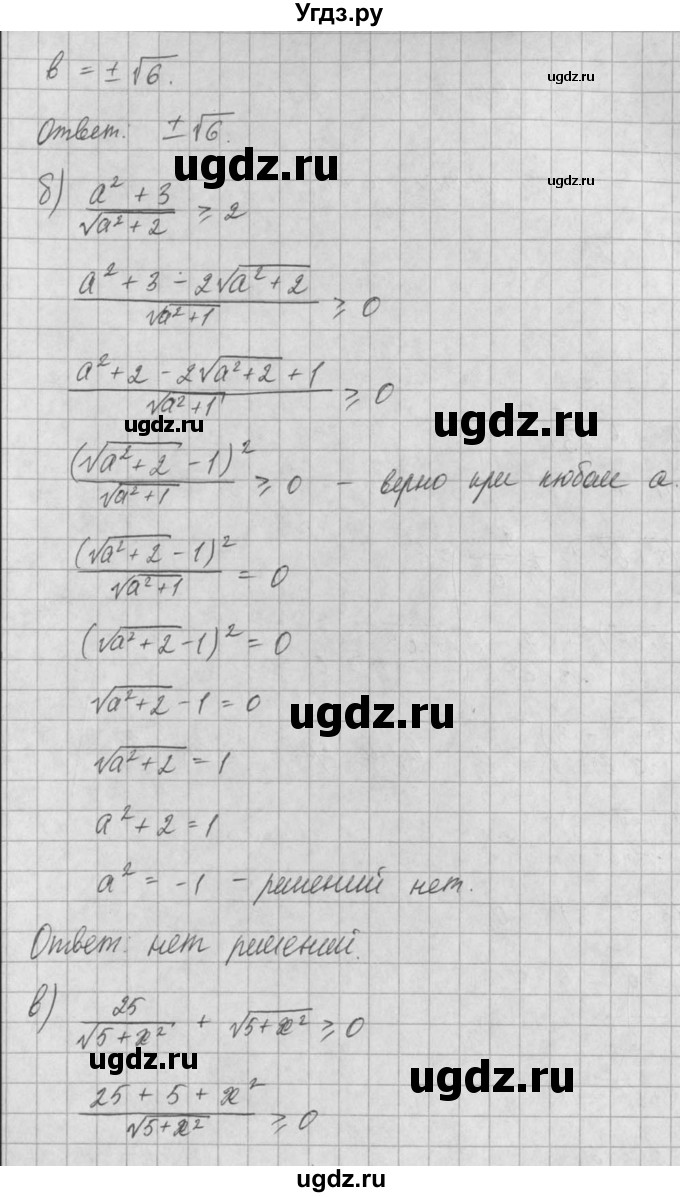 Угдз.ру
в = ±√6.
ugdz.ru
Ответ: ±√6.
ugdz.ru
ugdz.ru
б) (a² + 3)/√(a² + 2) ≥ 2
(a² + 3 - 2√(a² + 2))/√(a² + 1) ≥ 0
(a² + 2 - 2√(a² + 2) + 1)/√(a² + 1) ≥ 0
ugdz.ru
ugdz.ru
(√(a² + 2) - 1)²/√(a² + 1) ≥ 0 - верно при любом a.
(√(a² + 2) - 1)²/√(a² + 1) = 0
(√(a² + 2) - 1)² = 0
√(a² + 2) - 1 = 0
ugdz.ru
√(a² + 2) = 1
a² + 2 = 1
a² = -1 - решений нет.
Ответ: нет решений.
в) 25/√(5 + x²) + √(5 + x²) ≥ 0
ugdz.ru
ugdz.ru
(25 + 5 + x²)/√(5 + x²) ≥ 0
ugdz.ru